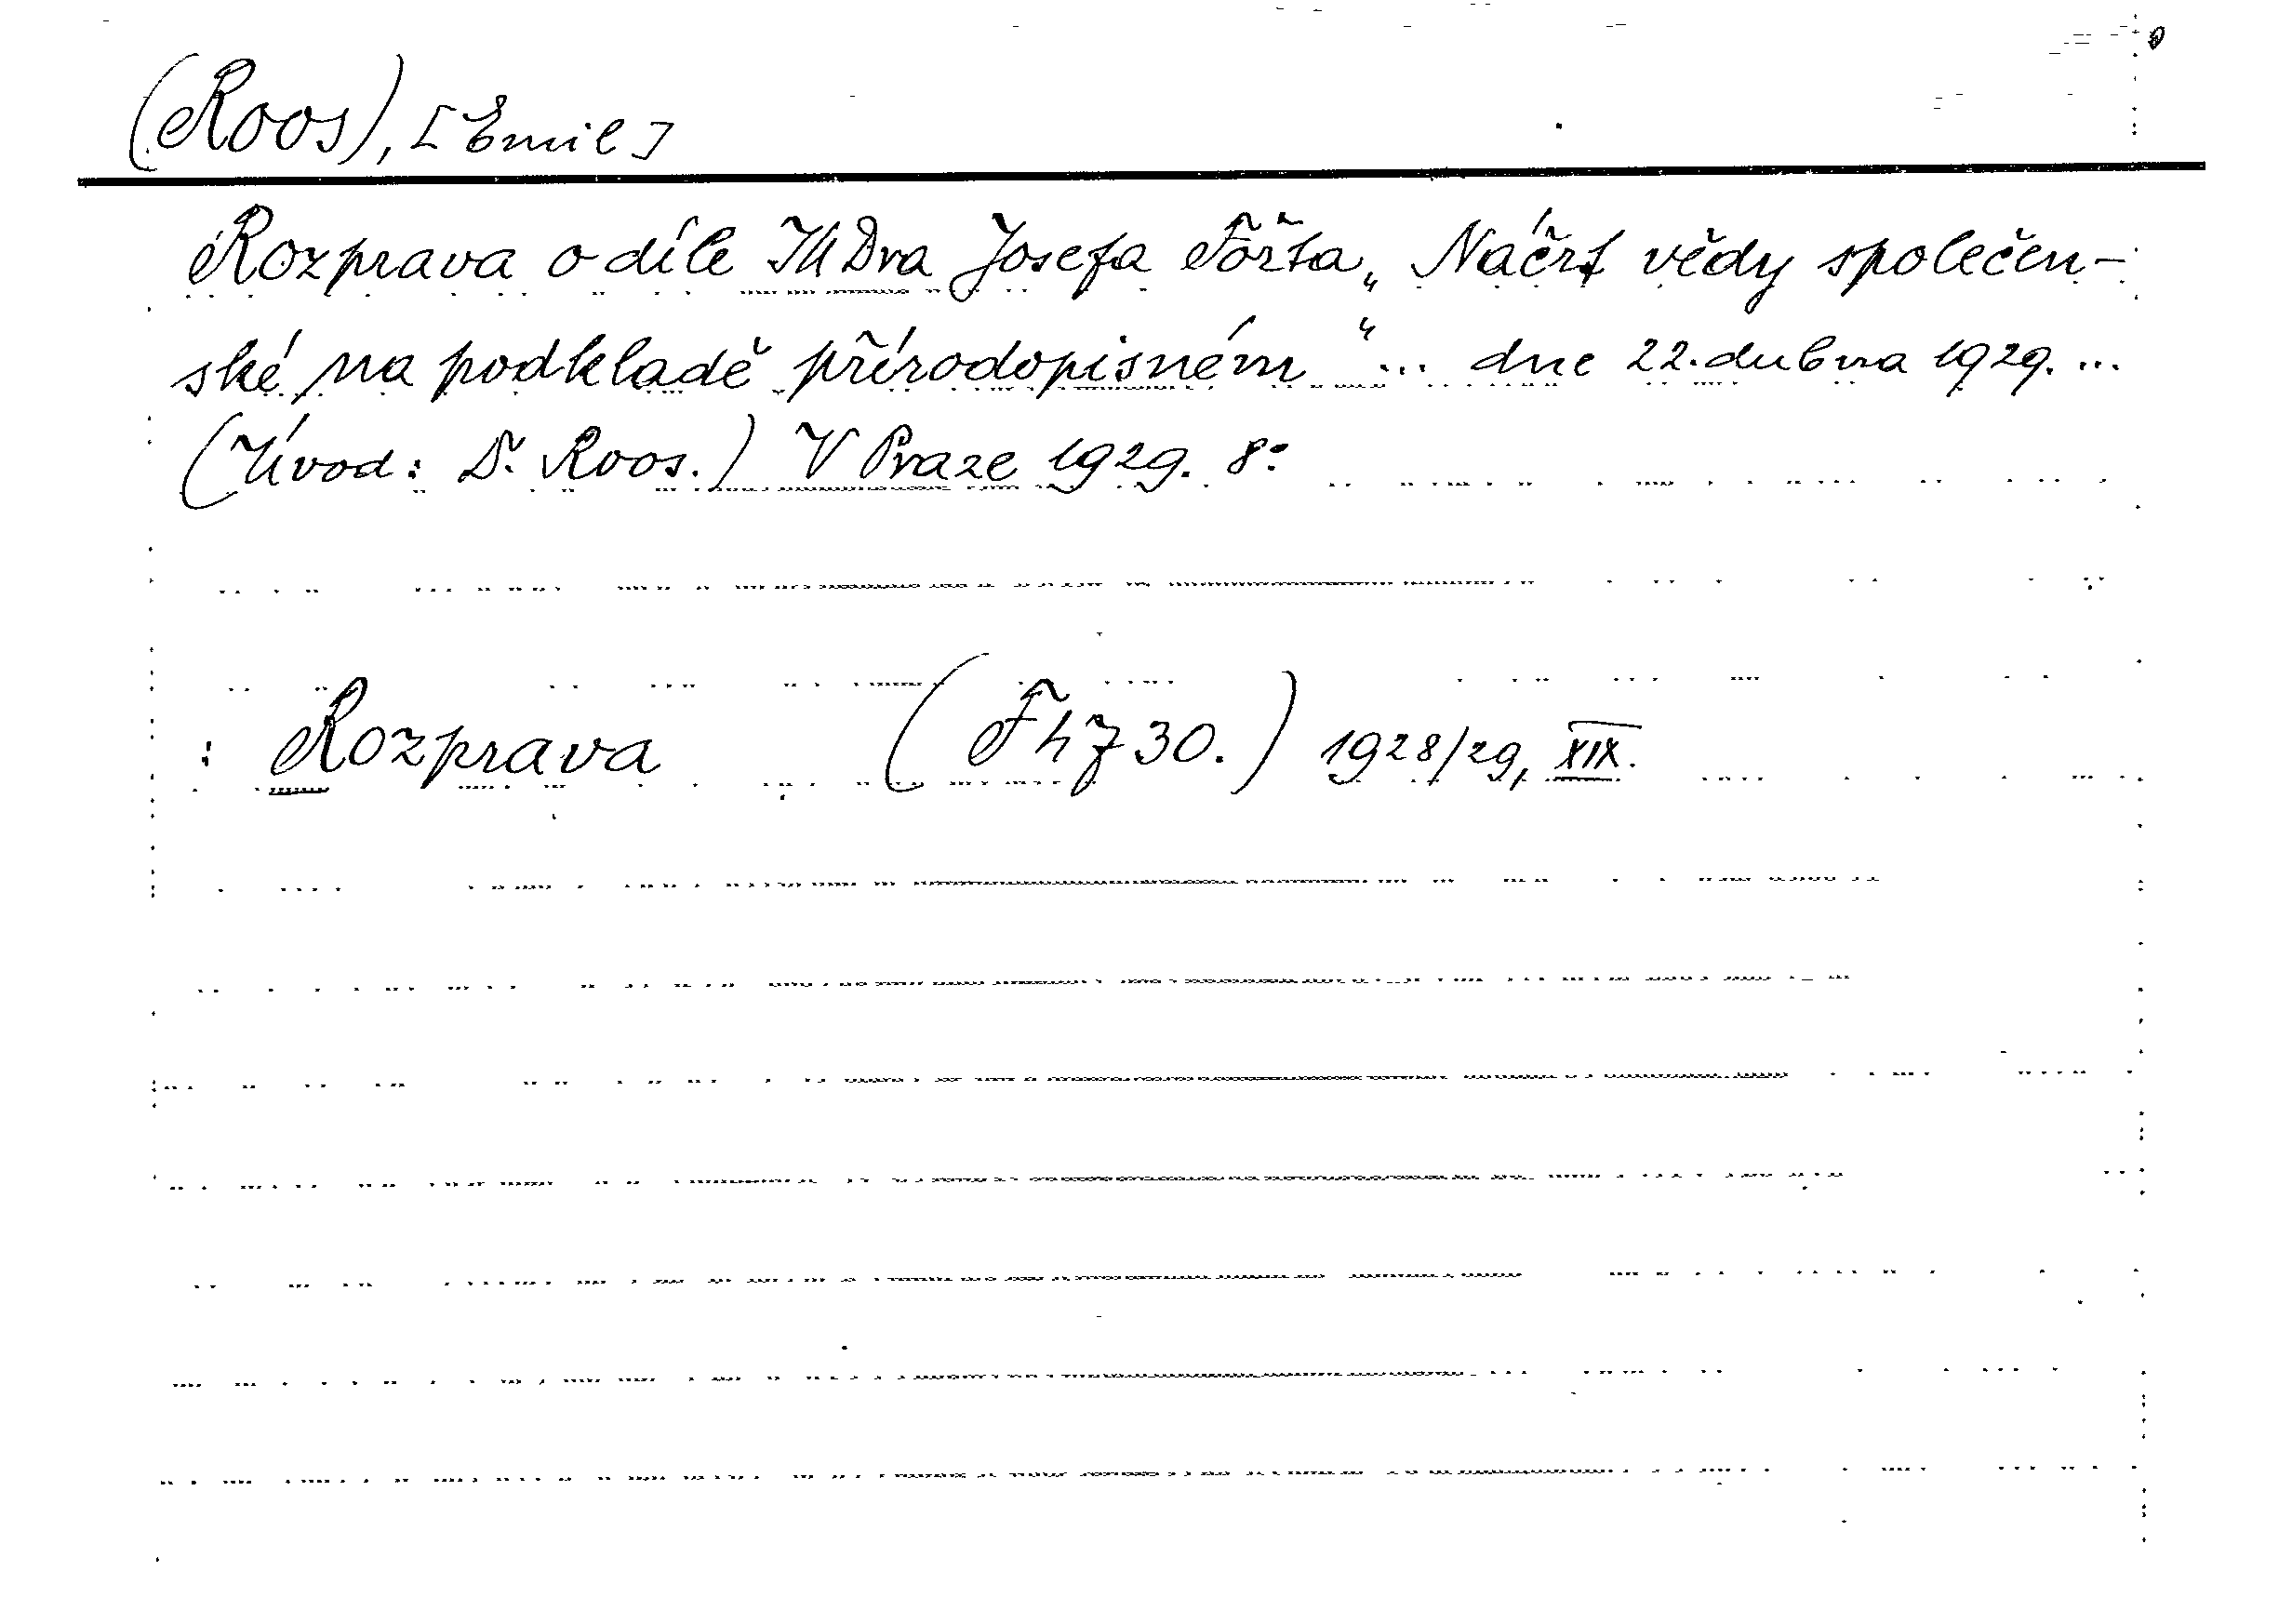 (Roos), [Emil]
Rozprava o díle JUDra Josefa Fořta „Náčrt vědy společen-
ské na podkladě přírodopisném“... dne 22. dubna 1929. ...
(Úvod: Dr. Roos.) V Praze 1929. 8°
: Rozprava (Fh 730.) 1928/29, XIX.